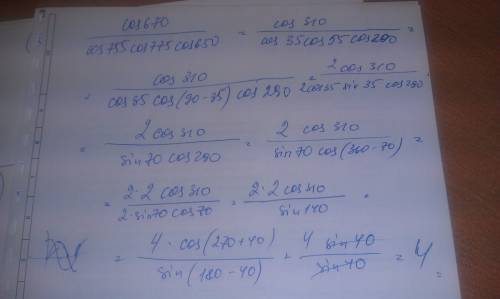 cos670 / cos755 cos775 cos650 = cos 310 / cos 35 cos 55 cos290 =
= cos 310 / cos 35 cos (90-35) cos 290 = 2 cos 310 / 2cos35 sin 35 cos290
= 2 cos 310 / sin70 cos290 = 2 cos 310 / sin 70 cos(360-70) =
= 2·2 cos310 / 2·sin70 cos70 = 2·2 cos310 / sin 140 =
= 4 · cos(270+40) / sin(180-40) = 4 sin 40 / sin 40 = 4